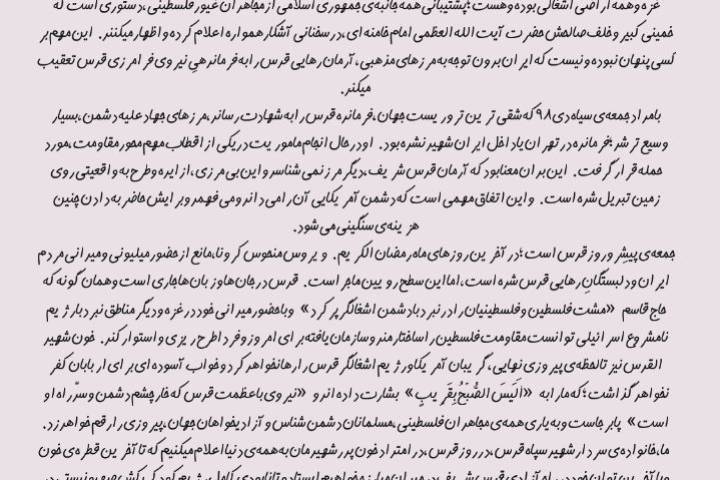 غزه و همه اراضی اشغالی بوده و هست؛ پشتیبانی همه جانبه‌ی جمهوری اسلامی از مجاهدان غیور فلسطینی، دستوری است که
خمینی کبیر و خلف صالحش حضرت آیت الله العظمی امام خامنه ای، در سخنانی آشکار همواره اعلام کرده و اظهار میکنند. این مهم بر
کسی پنهان نبوده و نیست که ایران بدون توجه به مرزهای مذهبی، آرمان رهایی قدس را به فرماندهی نیروی فرامرزی قدس تعقیب
میکند.
بامداد جمعه‌ی سیاه دی ۹۸ که شقی ترین تروریست جهان، فرمانده قدس را به شهادت رساند، مرزهای جهاد علیه دشمن، بسیار
وسیع تر شد؛ فرمانده در تهران یا داخل ایران شهید نشده بود. او در حال انجام ماموریت در یکی از اقطاب مهم محور مقاومت، مورد
حمله قرار گرفت. این بدان معنا بود که آرمان قدس شریف، دیگر مرز نمی شناسد و این بی مرزی، از ایده و طرح به واقعیتی روی
زمین تبدیل شده است. و این اتفاق مهمی است که دشمن آمریکایی آن را می داند و می فهمد و برایش حاضر به دادن چنین
هزینه‌ی سنگینی می شود.
جمعه‌ی پیش رو روز قدس است؛ در آخرین روزهای ماه رمضان الکریم. ویروس منحوس کرونا، مانع از حضور میلیونی و میدانی مردم
ایران و دلبستگانِ رهایی قدس شده است، اما این سطح رویین ماجرا است. قدس در جان ها و زبان ها جاری است و همان گونه که
حاج قاسم «مشت فلسطین و فلسطینیان را در نبرد با دشمن اشغالگر پر کرد» و با حضور میدانی خود در غزه و دیگر مناطق نبرد با رژیم
نامشروع اسرائیلی توانست مقاومت فلسطین را ساختارمند و سازمان یافته برای امروز و فردا طرح ریزی و استوار کند. خون شهید
القدس نیز تا لحظه‌ی پیروزی نهایی، گریبان آمریکا و رژیم اشغالگر قدس را رها نخواهد کرد و خواب آسوده ای برای اربابان کفر
نخواهد گذاشت؛ که ما را به «اَلَیسَ الصُّبحُ بِقَریبٍ» بشارت داده اند و «نیروی با عظمت قدس که خار چشم دشمن و سدّ راه او
است» پابرجاست و به یاری همه‌ی مجاهدان فلسطینی، مسلمانان دشمن شناس و آزادیخواهان جهان، پیروزی را رقم خواهد زد.
ما، خانواده‌ی سردار شهید سپاه قدس، در روز قدس، در امتداد خون پدر شهیدمان به همه‌ی دنیا اعلام میکنیم که تا آخرین قطره‌ی خون